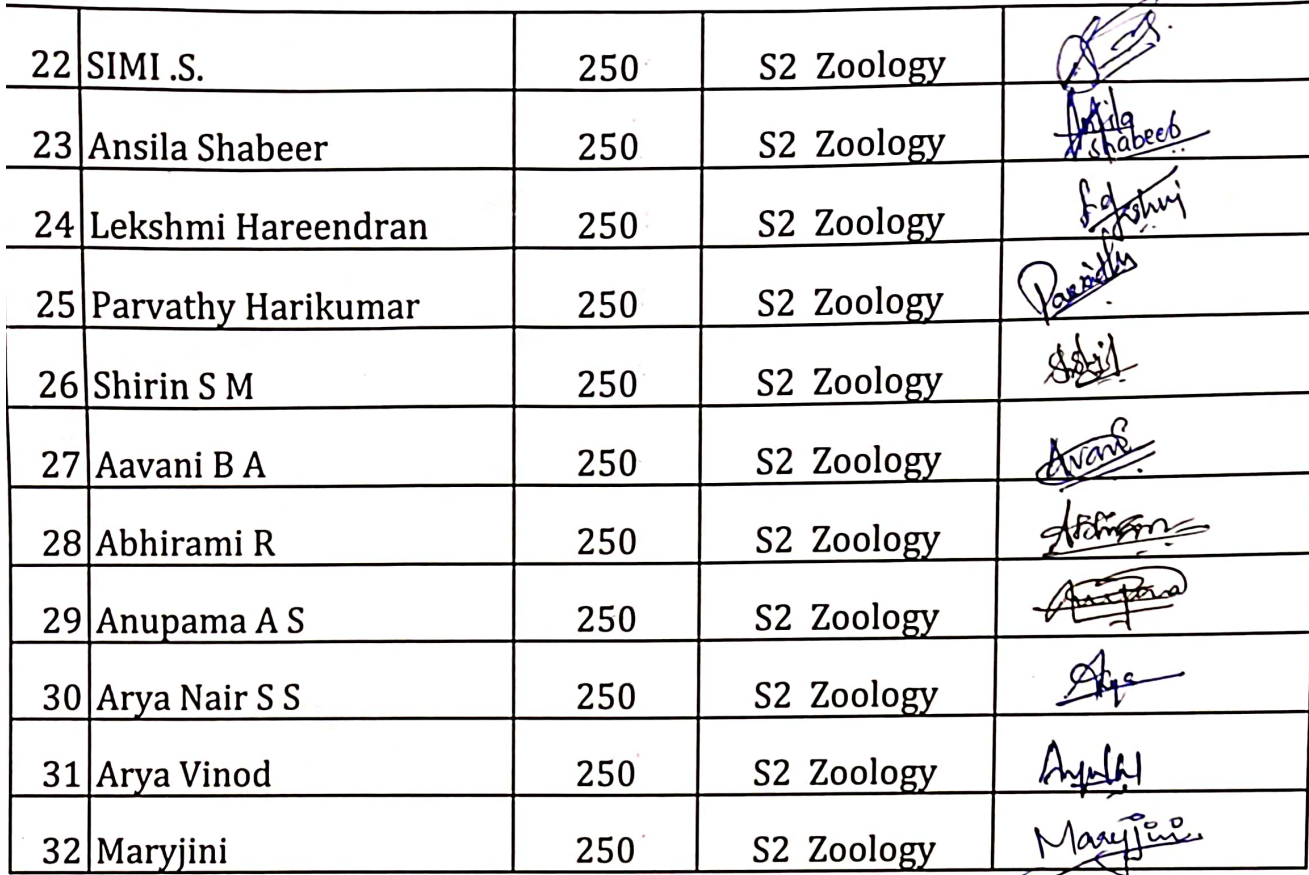 22 SIMI .S. 250 S2 Zoology
23 Ansila Shabeer 250 S2 Zoology Ansila
Shabeer
24 Lekshmi Hareendran 250 S2 Zoology
25 Parvathy Harikumar 250 S2 Zoology Parvathy
26 Shirin S M 250 S2 Zoology
27 Aavani B A 250 S2 Zoology Avani
28 Abhirami R 250 S2 Zoology
29 Anupama A S 250 S2 Zoology
30 Arya Nair S S 250 S2 Zoology Arya
31 Arya Vinod 250 S2 Zoology
32 Maryjini 250 S2 Zoology Maryjini